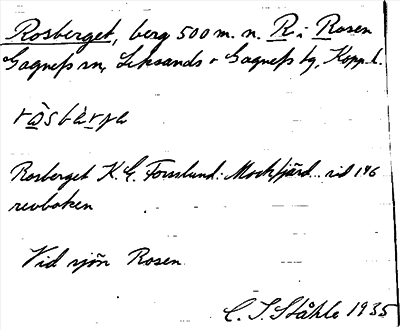 Rosberget, berg 500 m. n. R. i Rosen
Gagnefs sn, Leksands o Gagnefs tg, Kopp. l.
Rosberget K. E. Forsslund: Mockfjärd sid 146
revboken
Vid sjön Rosen
C. I. Ståhle 1935